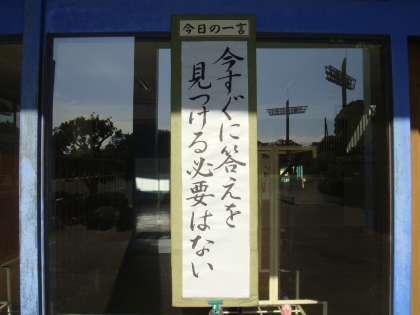 今日の一言
今すぐに答えを
見つける必要はない